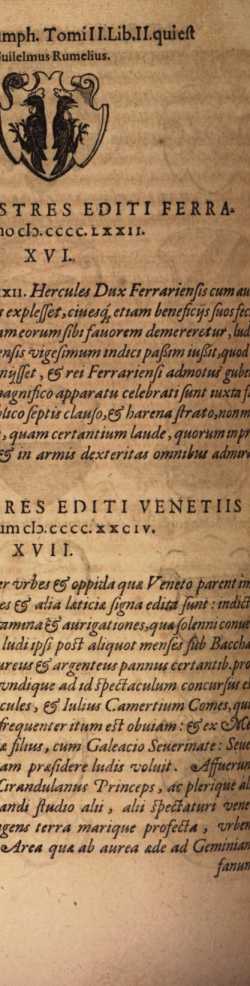 mph. Tomi II. Lib. II. qui est
uilelmus Rumelius.
STRES EDITI FERRA-
no cIɔ. cccc. LXXII.
XVI.
XXII. Hercules Dux Ferrariensis cum au
s explesset, ciuesq́, etiam beneficijs suos fec
am eorum sibi fauorem demereretur, lud
ensis vigesimum indici passim iussit, quod
nÿsset, & rei Ferrariensi admotus gube
magnifico apparatu celebrati sunt iuxta f
blico septis clauso, & harena strato, non m
, quam certantium laude, quorum inpr
& in armis dexteritas omnibus admira
RES EDITI VENETIIS
um cIɔ. cccc. XXCIV.
XVII.
er vrbes & oppida quæ Veneto parent im
es & alia laticiæ signa edita sunt: indict
tamina & aurigationes, qua solenni conue
ludi ipsi post aliquot menses sub Baccha
ureus & argenteus pannus certantib. pro
vndique ad id spectaculum concursus e
cules, & Iulius Camertium Comes, qui
frequenter itum est obuiam: & ex Me
æ filius, cum Galeacio Seuerinate: Seue
am præsidere ludis voluit. Affuerun
Mirandulanus Princeps, ac plerique al
andi studio alii, alii spectaturi vene
ngens terra marique profecta, vrben
Area quæ ab aurea æde ad Geminian
fanum